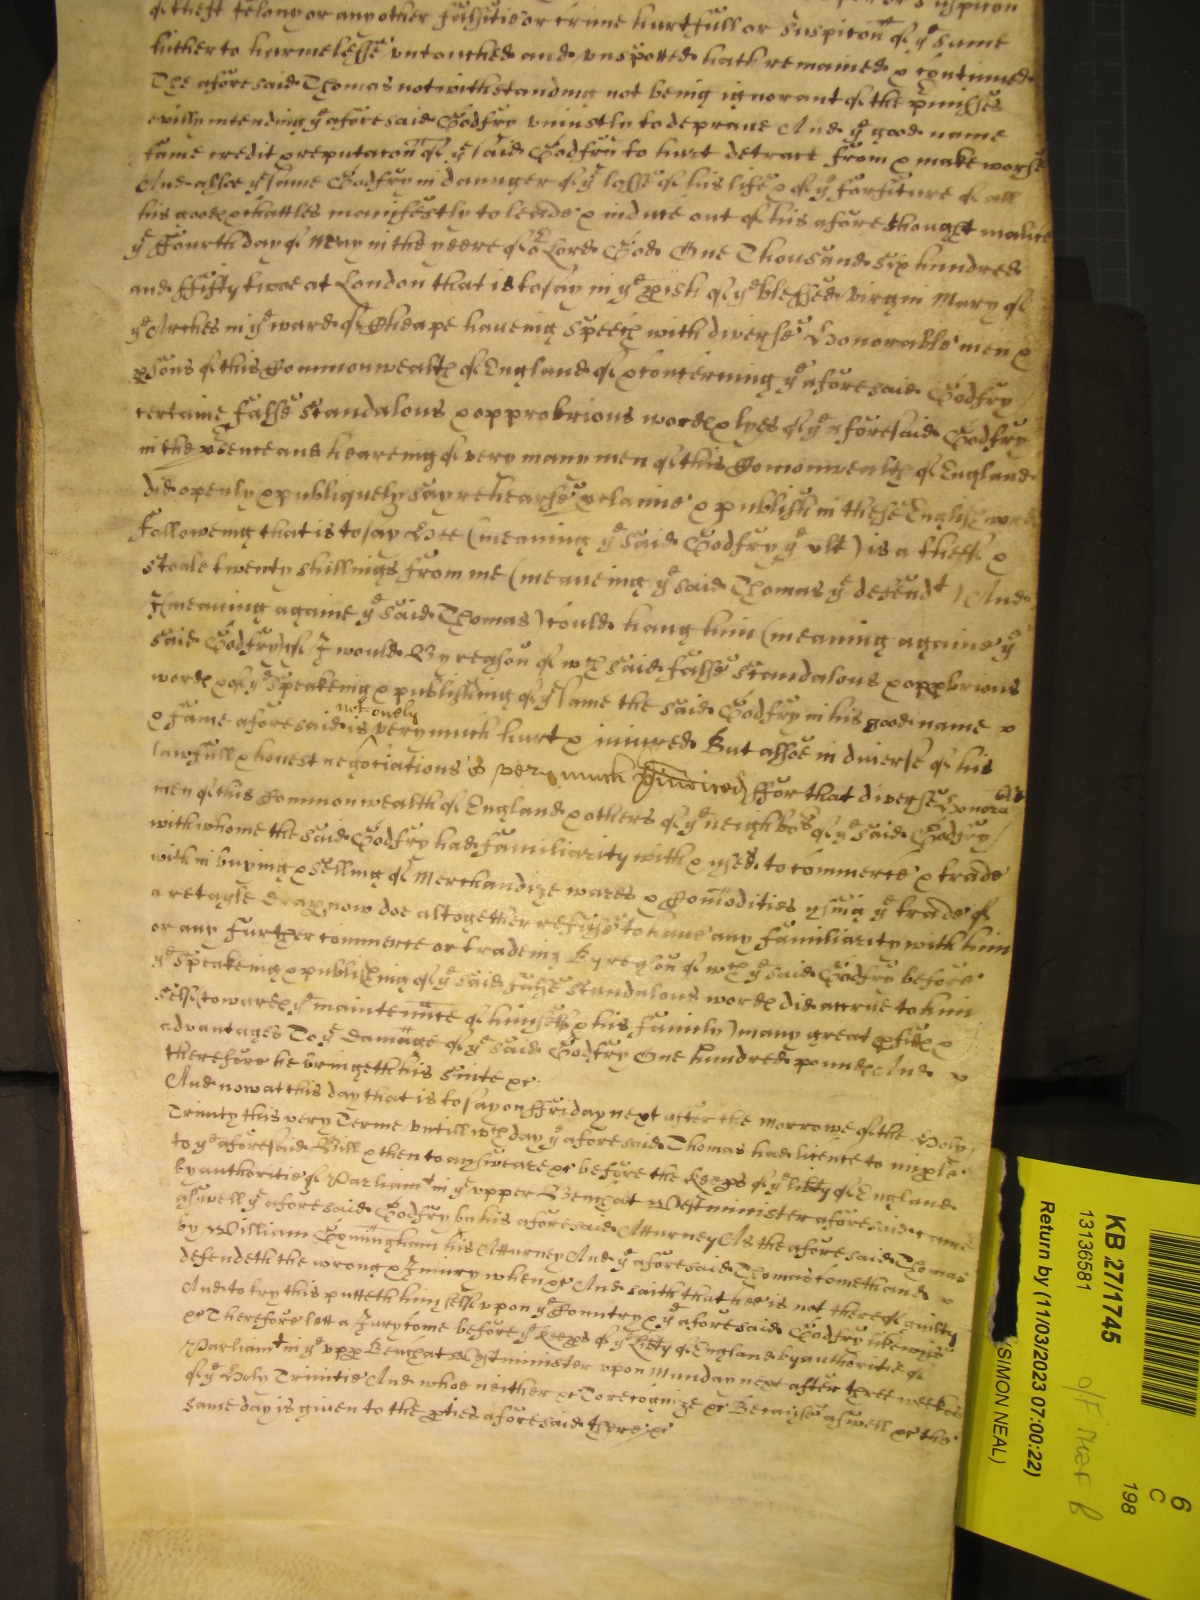 of theft felony or any other falsitie or crime hurtfull or suspicon of ye same
hitherto harmelesse untouched and unspotted hath remained & continued
The aforesaid Thomas notwithstanding not being ignorant of the pmisses
evilly intending ye aforesaid Godfry uniustly to deprave And ye good name
fame credit & reputacon of ye said Godfry to hurt detract from & make worse
And alsoe ye same Godfry in daunger of ye losse of his life & of ye forfiture of all
his goodes & chattles manifestly to leade & induce out of his aforethought malice
ye ffourth day of May in the yeere of or Lord God One Thousand six hundred
and ffifty twoe at London that is to say in ye pish of ye blessed virgin Mary of
ye Arches in ye ward of Cheape haveing speech with diverse Honorable men &
psons of this Commonwealth of England of & concerning ye aforesaid Godfry
certaine false scandalous & opprobrious wordes & lyes of ye aforesaid Godfry
in the psence and heareing of very many men of this Comonwealth of England
did openly & publiquely say rehearse pclaime & publish in these English words
followeing that is to say Hee (meaning ye said Godfry ye plt) is a theefe &
stoale twenty shillings from me (meaneing ye said Thomas ye defendt) And
I (meaning againe ye said Thomas) could hang him (meaning againe ye
said Godfry) if I would By reason of wch said false scandalous & opprbrious
wordes & of ye speakeing & publishing of ye same the said Godfry in his good name &
& fame aforesaid is not onely very much hurt & iniured But alsoe in diverse of his
lawfull & honest negotiations is very much piudiced ffor that diverse Honorable
men of this Commonwealth of England & others of ye neighbors of ye said Godfry
with whome the said Godfry had familiarity with & used to commerce & trade
with in buying & selling of Merchandize wares & Comodities using ye trade of
a retayle drap now doe altogether refuse to have any familiarity with him
or any further commerce or tradeing By reason of wch ye said Godfry before
ye speakeing & publishing of ye said false scandalous wordes did accrue to him
selfe (towardes ye maintennce of himselfe & his family) many great pfittes &
advantages To ye damage of ye said Godfry One hundred poundes And
therefore he bringeth his suite &c
And now at this day that is to say on ffriday next after the morrowe of the Holy
Trinity this very Terme untill wch day ye aforesaid Thomas had licence to imple
to ye aforesaid Bill & then to answeare &c before the Keeps of ye libty of England
by authoritie of Parliamt in ye upper Bench at Westminister aforesaid came
aswell ye aforesaid Godfry by his aforesaid Atturney As the aforesaid Thomas
by William Conningham his Atturney And ye aforesaid Thomas cometh and
defendeth the wrong & Iniury when &c And saith that hee is not thereof guilty
And to try this putteth himselfe upon ye Countrey & ye aforesaid Godfry likewise
&c Therefore lett a Jury come before ye Keeps of ye Libty of England by authoritie of
Parliamt in ye upp Bench at Westminister upon Munday next after three weekes
of ye Holy Trinitie And whoe neither &c To recognize &c Because aswell &c the
same day is given to the pties aforesaid there &c
KB 27/1745
13136581
Return by (11/03/2023 07:00:22)
(SIMON NEAL)
6
C
198